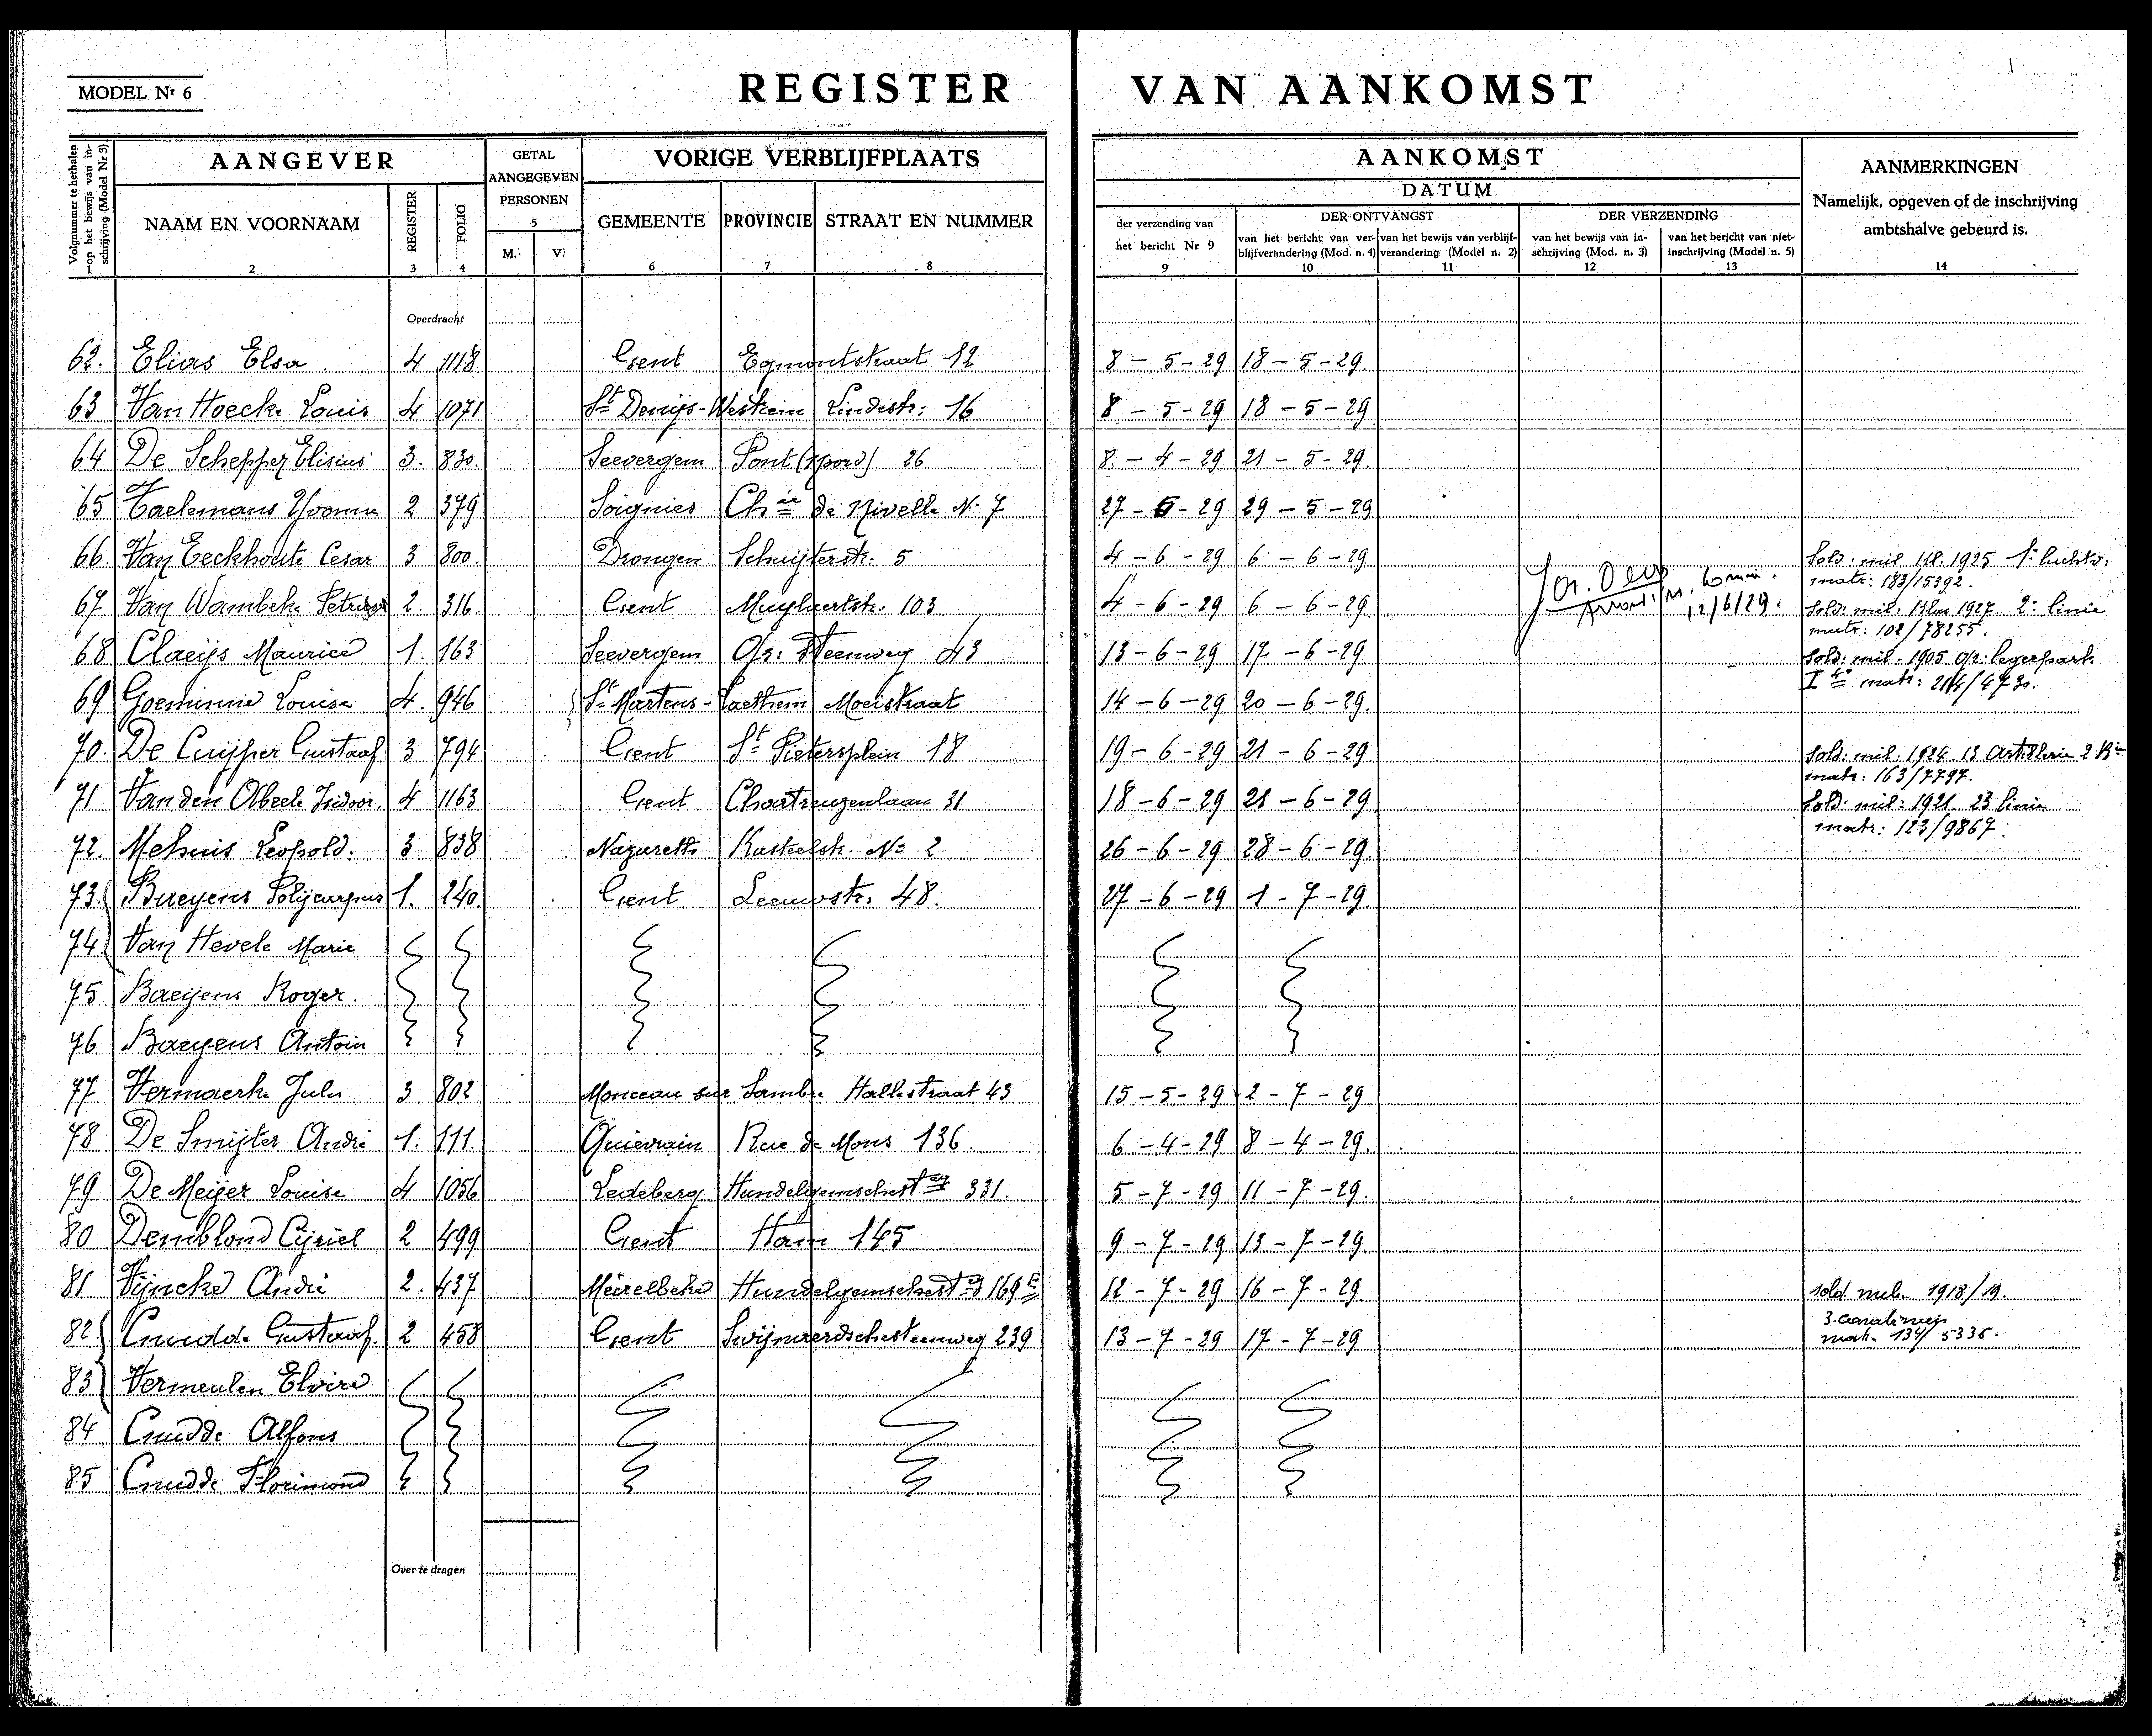 MODEL Nr 6
REGISTER VAN AANKOMST
Volgnummer te herhalen op het bewijs van inschrijving (Model Nr 3)
AANGEVER
GETAL AANGEGEVEN PERSONEN
VORIGE VERBLIJFPLAATS
AANKOMST
AANMERKINGEN
DATUM
Namelijk, opgeven of de inschrijving ambtshalve gebeurd is.
NAAM EN VOORNAAM
REGISTER
FOLIO
M. V.
GEMEENTE
PROVINCIE
STRAAT EN NUMMER
der verzending van het bericht Nr 9
DER ONTVANGST
DER VERZENDING
van het bericht van verblijfverandering (Mod. n. 4)
van het bewijs van verblijfverandering (Model n. 2)
van het bewijs van inschrijving (Mod. n. 3)
van het bericht van niet-inschrijving (Model n. 5)
1 2 3 4 5 6 7 8 9 10 11 12 13 14
Overdracht
62. Elias Elsa 4 1118 Gent Egmontstraat 12 8 - 5 - 29 18 - 5 - 29
63 Van Hoecke Louis 4 1071 St Denijs-Westrem Lindestr: 16 8 - 5 - 29 18 - 5 - 29
64 De Schepper Elisius 3. 830. Seevergem Pont (Noord) 26 8 - 4 - 29 21 - 5 - 29
65 Taelemans Yvonne 2 379 Soignies Chée de Nivelle N. 7 27 - 5 - 29 29 - 5 - 29
66. Van Eeckhoute Cesar 3 800. Drongen Schuijterstr: 5 4 - 6 - 29 6 - 6 - 29 Sold: mil kl. 1925 1e luchtv:
matr: 183/15392.
67 Van Wambeke 2. 316. Gent Muylaertstr. 103 4 - 6 - 29 6 - 6 - 29 12/6/29. Sold: mil: klas 1927 2e linie
matr: 102/78255.
68 Claeijs Maurice 1. 163 Seevergem Gr: Steenweg 43 13 - 6 - 29 17 - 6 - 29 Sold: mil: 1905 Gr: legerpark
I matr: 214/4730.
69 Goeminne Louise 4. 946 St Martens-Laethem Moeistraat 14 - 6 - 29 20 - 6 - 29.
70. De Cuijper Gustaaf 3 794 Gent St Pietersplein 18 19 - 6 - 29 21 - 6 - 29 Sold: mil: 1924 13 Artillerie 2 Bie
matr: 163/7797.
71 Van den Abeele Isidoor. 4 1163 Gent Chartreuzenlaan 31 18 - 6 - 29 21 - 6 - 29 Sold: mil: 1921 23 linie
matr: 123/9867.
72. Mehuis Leopold. 3 838 Nazareth Kasteelstr. No 2 26 - 6 - 29 28 - 6 - 29
73. Baeyens Polijcarpus 1. 240. Gent Leeuwstr: 48. 27 - 6 - 29 1 - 7 - 29
74 Van Hevele Marie
75 Baeijens Roger.
76 Baeyens Antoin
77 Vermaerke Jules 3 802 Monceau sur Sambre Hallestraat 43 15 - 5 - 29 2 - 7 - 29
78 De Smijter André 1. 111. Quievrain Rue de Mons 136. 6 - 4 - 29 8 - 4 - 29.
79 De Meijer Louise 4 1056 Ledeberg Hundelgemschestweg 331. 5 - 7 - 29 11 - 7 - 29.
80 Demblond Cijriel 2 499 Gent Ham 145 9 - 7 - 29 13 - 7 - 29
81 Vijncke André 2. 437 Meirelbeke Hundelgemschestweg 169 E 12 - 7 - 29 16 - 7 - 29 sold. mil. 1918/19.
3. Carabiniers
82. Cnudde Gustaaf 2 458 Gent Swijnaerdschesteenweg 239 13 - 7 - 29 17 - 7 - 29 matr. 134/5336.
83 Vermeulen Elvire.
84 Cnudde Alfons
85 Cnudde Florimond
Over te dragen